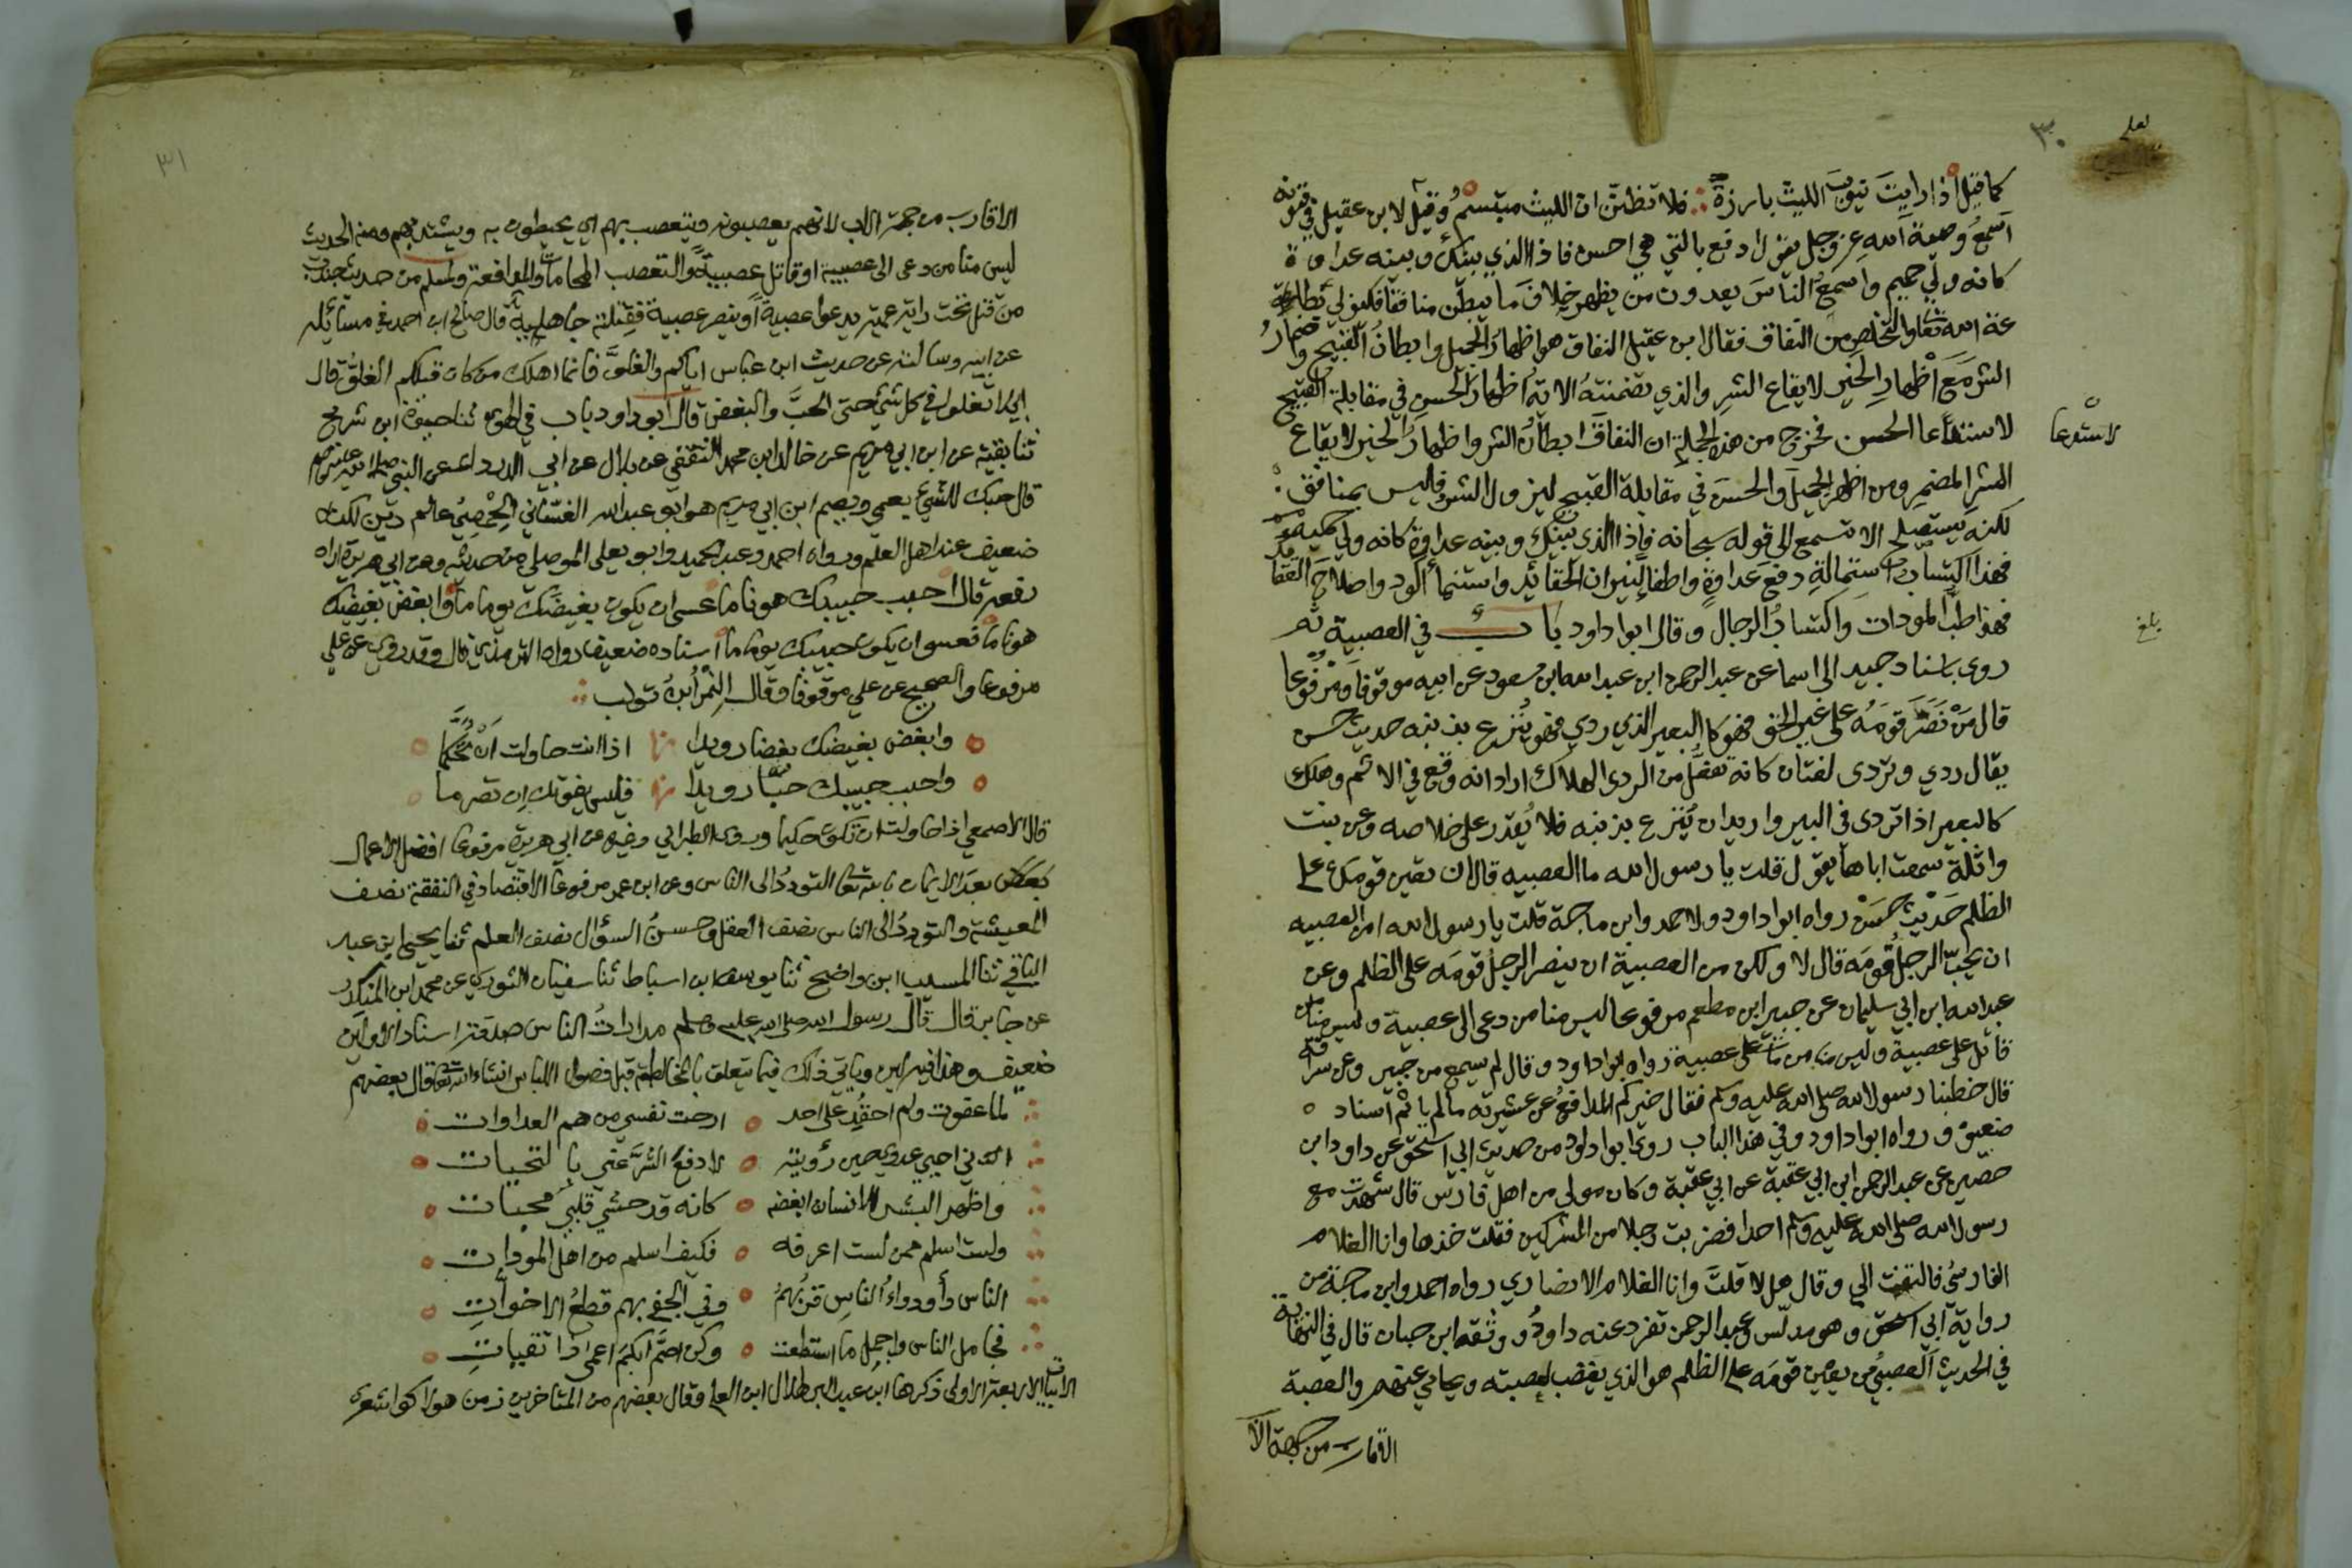 ٣٠
كما قيل اذا رايت نيوب الليث بارزة فلا تظنن ان الليث مبتسم وقيل لابن عقيل في فنونه
اسمع وصية الله عز وجل يقول ادفع بالتي هي احسن فاذا الذي بينك وبينه عداوة
كانه ولي حميم واسمع الناس يعدون من يظهر خلاف ما يبطن منافقا فكيف لي بطاعة
الله تعالى والتخلص من النفاق فقال ابن عقيل النفاق هو اظهار الجميل وابطان القبيح واضمار
الشر مع اظهار الخير لايقاع الشر والذي تضمنته الاية اظهار الحسن في مقابلة القبيح
لاستدعاء الحسن فخرج من هذه الجملة ان النفاق ابطان الشر واظهار الخير لايقاع
لاستدعا
الشر المضمر ومن اظهر الجميل والحسن في مقابلة القبيح ليزول الشر فليس بمنافق
لكنه يستصلح الا تسمع الى قوله سبحانه فاذا الذي بينك وبينه عداوة كانه ولي حميم
فهذا اكتساب استمالة ودفع عداوة واطفا لنيران الحقائد واستنما الود واصلاح العقائد
فهذا طب المودات واكتساب الرجال وقال ابوا داود باب في العصبية ثم
بلغ
روى باسناد جيد الى سماك عن عبد الرحمن ابن عبد الله ابن مسعود عن ابيه موقوفا ومرفوعا
قال من نصر قومه على غير الحق فهو كالبعير الذي ردي فهو ينزع بذنبه حديث حسن
يقال ردي وتردى لغتان كانه تفعل من الردى الهلاك اراد انه وقع في الاثم وهلك
كالبعير اذا تردى في البير واريد ان ينزع بذنبه فلا يقدر على خلاصه وعن بنت
واثلة سمعت اباها يقول قلت يا رسول الله ما العصبيه قال ان تعين قومك على
الظلم حديث حسن رواه ابوا داود ولاحمد وابن ماجة قلت يا رسول الله امن العصبيه
ان يحب الرجل قومه قال لا ولكن من العصبية ان ينصر الرجل قومه على الظلم وعن
عبد الله ابن ابي سليمان عن جبير ابن مطعم مرفوعا ليس منا من دعى الى عصبية وليس منا من
قاتل على عصبية وليس منا من مات على عصبية رواه ابوا داود وقال لم يسمع من جبير وعن سراقة
قال خطبنا رسول الله صلى الله عليه وسلم فقال خيركم المدافع عن عشيرته ما لم ياثم اسناد
ضعيف ورواه ابوا داود وفي هذا الباب روى ابوا داود من حديث ابي اسحق عن داود ابن
حصين عن عبد الرحمن ابن ابي عقبة عن ابي عقبة وكان مولى من اهل فارس قال شهدت مع
رسول الله صلى الله عليه وسلم احدا فضربت رجلا من المشركين فقلت خذها وانا الغلام
الفارسي فالتفت الي وقال هلا قلت وانا الغلام الانصاري رواه احمد وابن ماجة من
رواية ابي اسحق وهو مدلس وعبد الرحمن تفرد عنه داود ووثقه ابن حبان قال في النهاية
في الحديث العصبي من يعين قومه على الظلم هو الذي يغضب لعصبته ويحامي عنهم والعصبة
الاقارب من جهة الا
٣١
الاقارب من جهة الاب لانهم يعصبونه ويتعصب بهم اي يحيطون به ويشتد بهم ومنه الحديث
ليس منا من دعى الى عصبية او قاتل عصبية والتعصب المحاماة والمدافعة ولمسلم من حديث جندب
من قتل تحت راية عمية يدعوا عصبية او ينصر عصبية فقتلة جاهلية قال صالح ابن احمد في مسائله
عن ابيه وسالته عن حديث ابن عباس اياكم والغلو فانما اهلك من كان قبلكم الغلو قال
ايلا تغلوا في كل شئ حتى الحب والبغض قال ابو داود باب في الهوى ثنا حيوة ابن شريح
ثنا بقية عن ابن ابي مريم عن خالد ابن محمد الثقفي عن بلال عن ابي الدرداء عن النبي صلى الله عليه وسلم
قال حبك للشئ يعمي ويصم ابن ابي مريم هو ابو عبد الله الغساني الحمصي عالم دين لكنه
ضعيف عند اهل العلم ورواه احمد وعبد الحميد وابو يعلى الموصلي من حديثه وعن ابي هريرة اراه
رفعه قال احبب حبيبك هونا ما عسى ان يكون بغيضك يوما ما وابغض بغيضك
هونا ما فعسى ان يكون حبيبك يوما ما اسناده ضعيف رواه الترمذي قال وقد روي عن علي
مرفوعا والصحيح عن علي موقوفا وقال النمر ابن تولب
وابغض بغيضك بغضا رويدا اذا انت حاولت ان تحكما
واحبب حبيبك حبا رويدا فليس يفوتك ان تصرما
قال الاصمعي اذا حاولت ان تكون حكيما وروى الطبراني وغيره عن ابي هريرة مرفوعا افضل الاعمال
بعد الايمان بالله تعالى التودد الى الناس وعن ابن عمر مرفوعا الاقتصاد في النفقة نصف
المعيشة والتودد الى الناس نصف العقل وحسن السؤال نصف العلم ثنا يحيى ابن عبد
الباقي ثنا المسيب ابن واضح ثنا يوسف ابن اسباط ثنا سفيان الثوري عن محمد ابن المنكدر
عن جابر قال قال رسول الله صلى الله عليه وسلم مدارات الناس صدقة اسناد الاولين
ضعيف وهذا فيه لين وياتي ذلك فيما يتعلق بالمخالطة قبل فصول اللباس ان شاء الله تعالى قال بعضهم
لما عفوت ولم احقد على احد ارحت نفسي من هم العداوات
اني احيي عدوي حين رؤيته لادفع الشر عني بالتحيات
واظهر البشر للانسان ابغضه كانه قد حشي قلبي محبات
ولست اسلم ممن لست اعرفه فكيف اسلم من اهل المودات
الناس داء ودواء الناس قربهم وفي الجفى بهم قطع الاخوات
فجامل الناس واجمل ما استطعت وكن اصم ابكم اعمى ذا تقيات
الابيات الاربعة الاولى ذكرها ابن عبد البر لهلال ابن العلا وقال بعضهم من المتاخرين